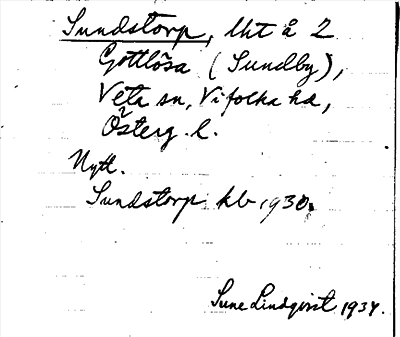 Sundstorp, lht å 2
Gottlösa (Sundby),
Veta sn, Vifolka hd,
Österg. l.
Nytt.
Sundstorp kb 1930.
Sune Lindqvist 1934.